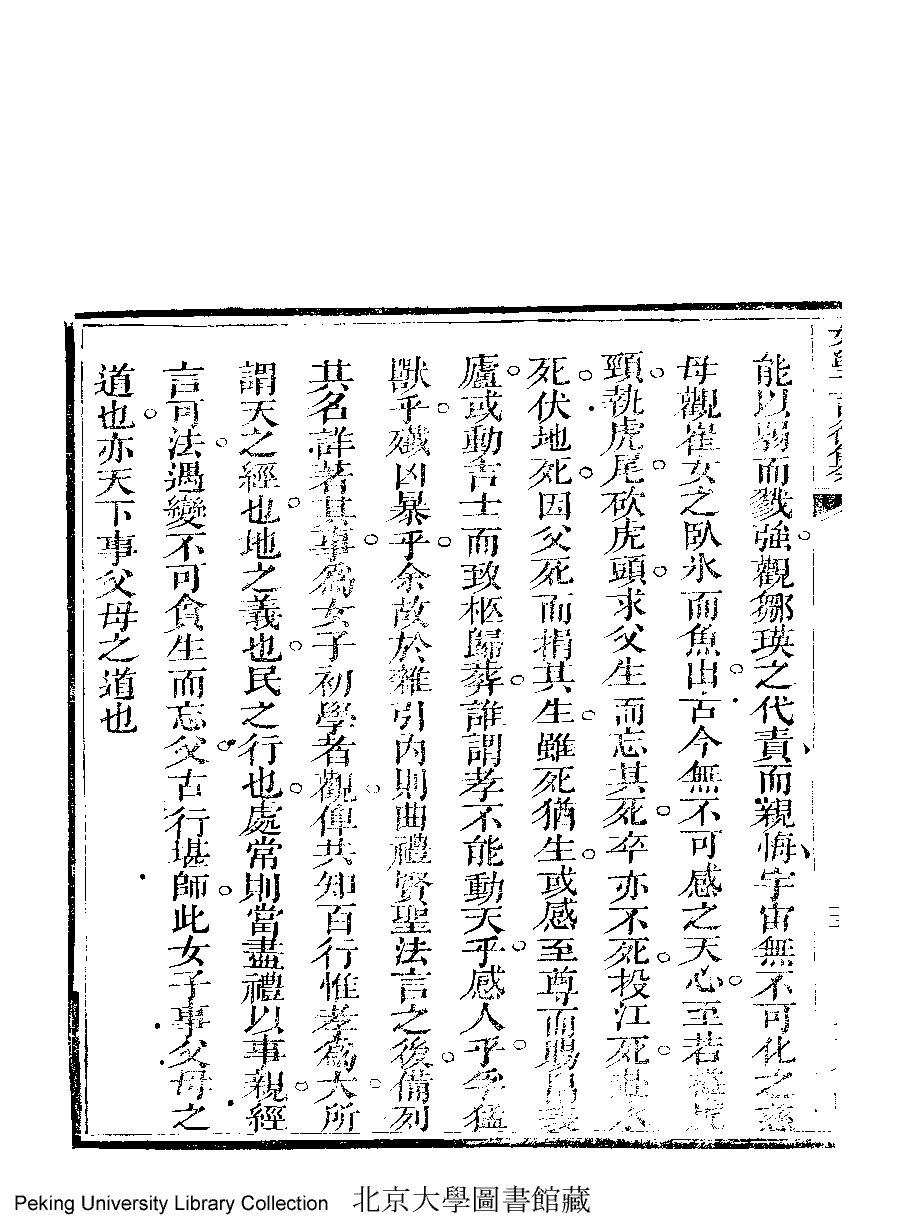 能以弱而戮強觀鄒瑛之代責而親悔宇宙無不可化之慈
母觀崔女之臥氷而魚出古今無不可感之天心至若搤虎
頸執虎尾砍虎頭求父生而忘其死卒亦不死投江死赴水
死伏地死因父死而捐其生雖死猶生或感至尊而賜帛表
廬或動吉士而致柩歸葬誰謂孝不能動天乎感人乎孚猛
獸乎殲凶暴乎余故於雜引內則曲禮賢聖法言之後備列
其名詳著其事爲女子初學者觀俾共知百行惟孝爲大所
謂天之經也地之義也民之行也處常則當盡禮以事親經
言可法遇變不可貪生而忘父古行堪師此女子事父母之
道也亦天下事父母之道也
Peking University Library Collection 北京大學圖書館藏